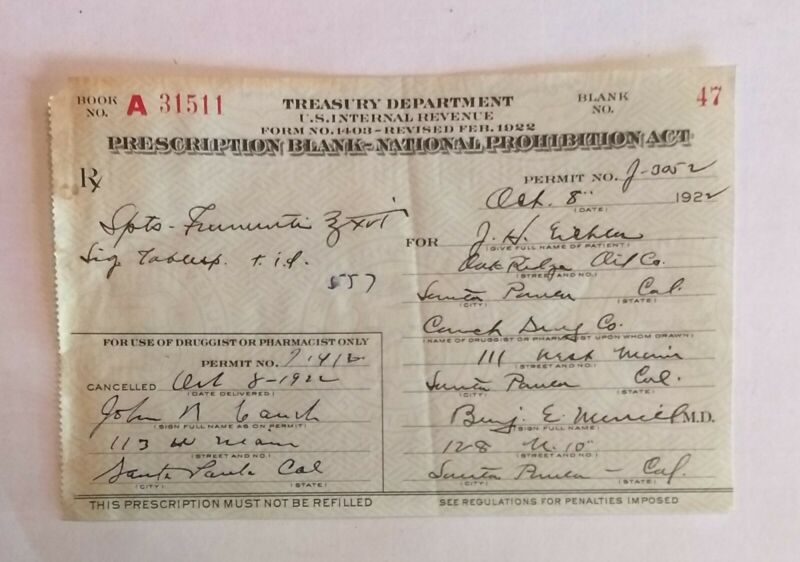 BOOK NO. A 31511
TREASURY DEPARTMENT
U.S. INTERNAL REVENUE
FORM NO. 1403 - REVISED FEB. 1922
BLANK NO. 47
PRESCRIPTION BLANK - NATIONAL PROHIBITION ACT
Rx
PERMIT NO. J-3052
Oct. 8" 1922
(DATE)
Spts - Frumenti ℥xvi
Sig Tablesp. t.i.d.
557
FOR J. H.
(GIVE FULL NAME OF PATIENT)
Oak Ridge Oil Co.
(STREET AND NO.)
Santa Paula Cal.
(CITY) (STATE)
Cauch Drug Co.
(NAME OF DRUGGIST OR PHARMACIST UPON WHOM DRAWN)
111 West Main
(STREET AND NO.)
Santa Paula Cal.
(CITY) (STATE)
Benj. E. Merrill M.D.
(SIGN FULL NAME)
128 N. 10"
(STREET AND NO.)
Santa Paula - Cal.
(CITY) (STATE)
FOR USE OF DRUGGIST OR PHARMACIST ONLY
PERMIT NO.
CANCELLED Oct 8-1922
(DATE DELIVERED)
John N Cauch
(SIGN FULL NAME AS ON PERMIT)
113 W Main
(STREET AND NO.)
Santa Paula Cal
(CITY) (STATE)
THIS PRESCRIPTION MUST NOT BE REFILLED
SEE REGULATIONS FOR PENALTIES IMPOSED